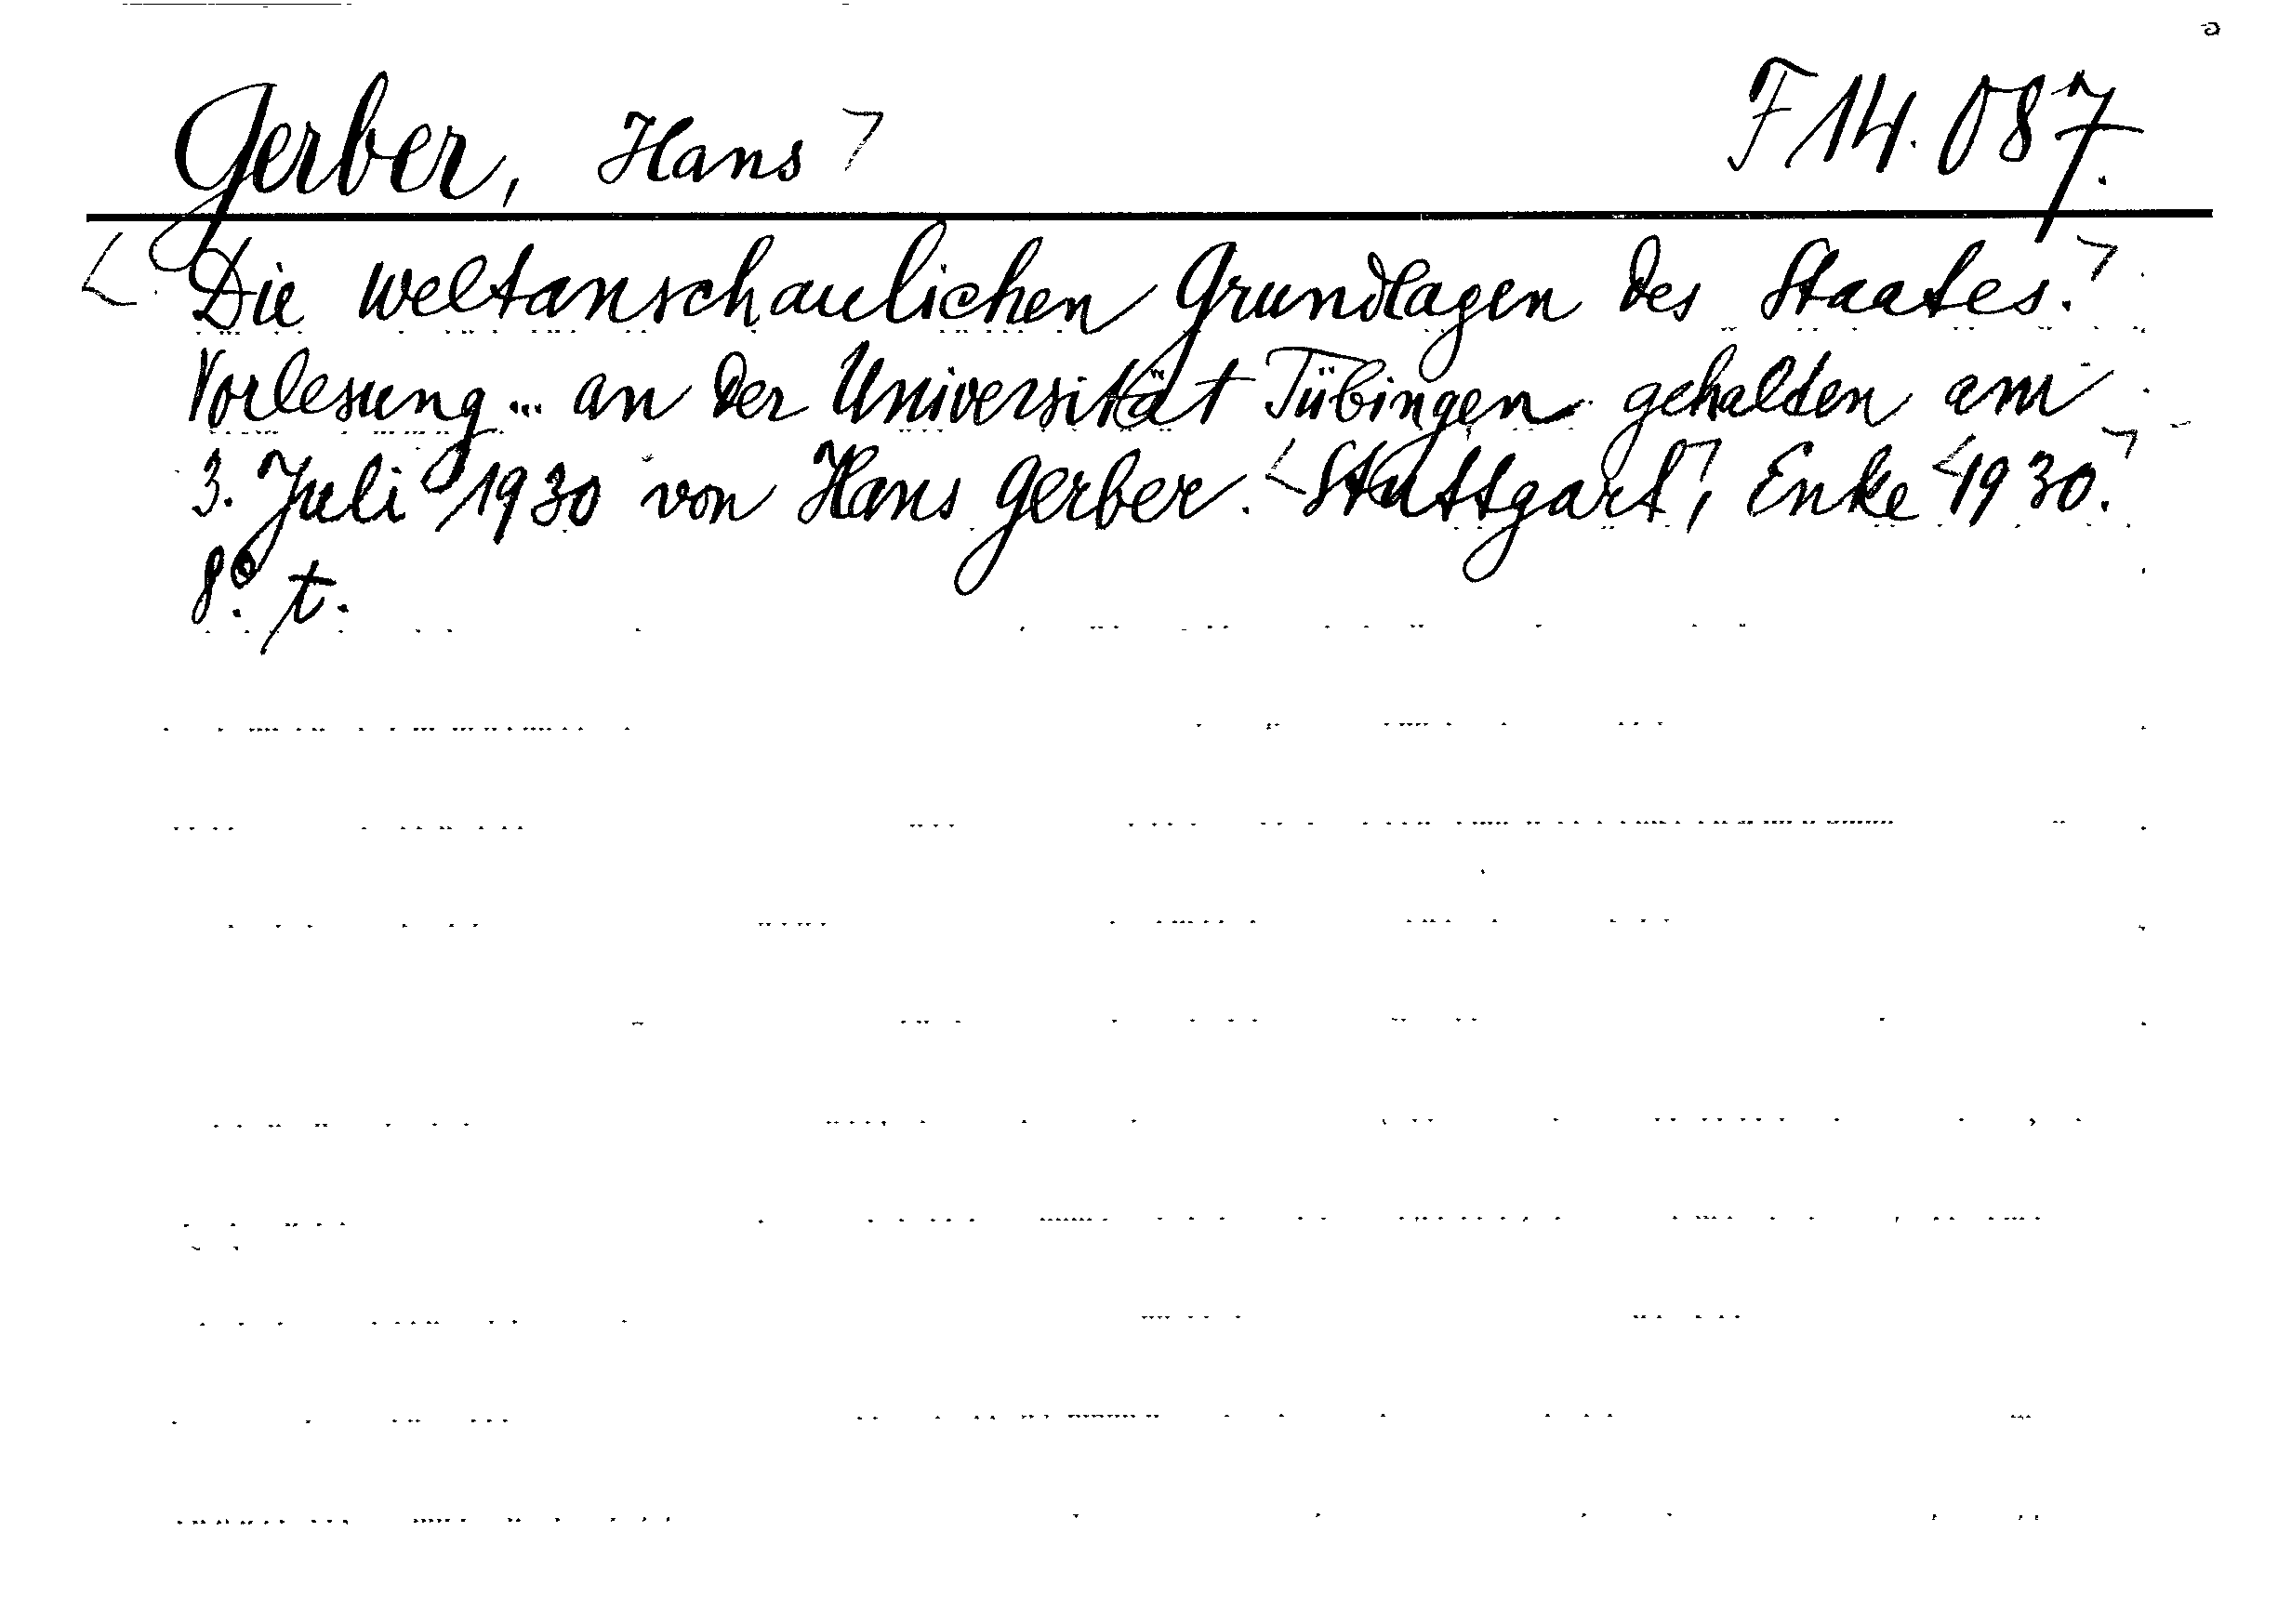 Gerber, Hans F 14.087.
Die weltanschaulichen Grundlagen des Staates.
Vorlesung ... an der Universität Tübingen gehalten am
3. Juli 1930 von Hans Gerber. Stuttgart, Enke 1930.
8°. t.